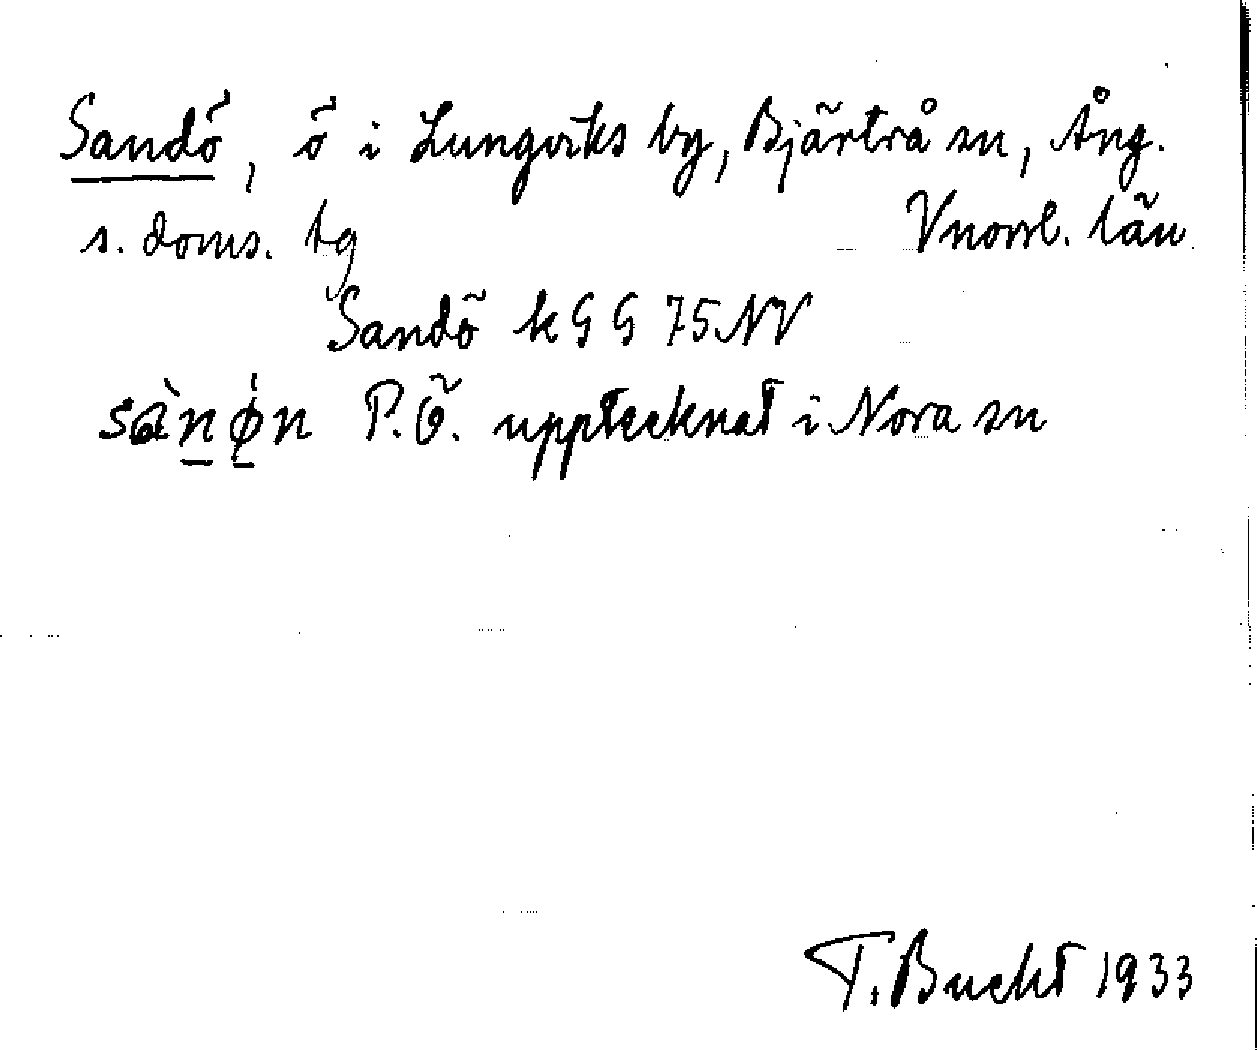 Sandö, ö i Lungviks by, Bjärtrå sn, Ång.
s. doms. tg Vnorrl. län
Sandö k G G 75 NV
sànǿn P.Ö. upptecknat i Nora sn
T. Bucht 1933